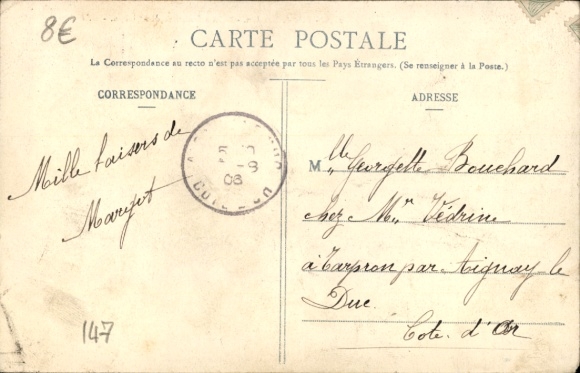 8€
CARTE POSTALE
La Correspondance au recto n'est pas acceptée par tous les Pays Étrangers. (Se renseigner à la Poste.)
CORRESPONDANCE
ADRESSE
Mille baisers de
Margot
08
COTE D'OR
Mlle Georgette Bouchard
chez Mr Védrine
à Tarpron par Aignay le
Duc
Cote d'Or
147